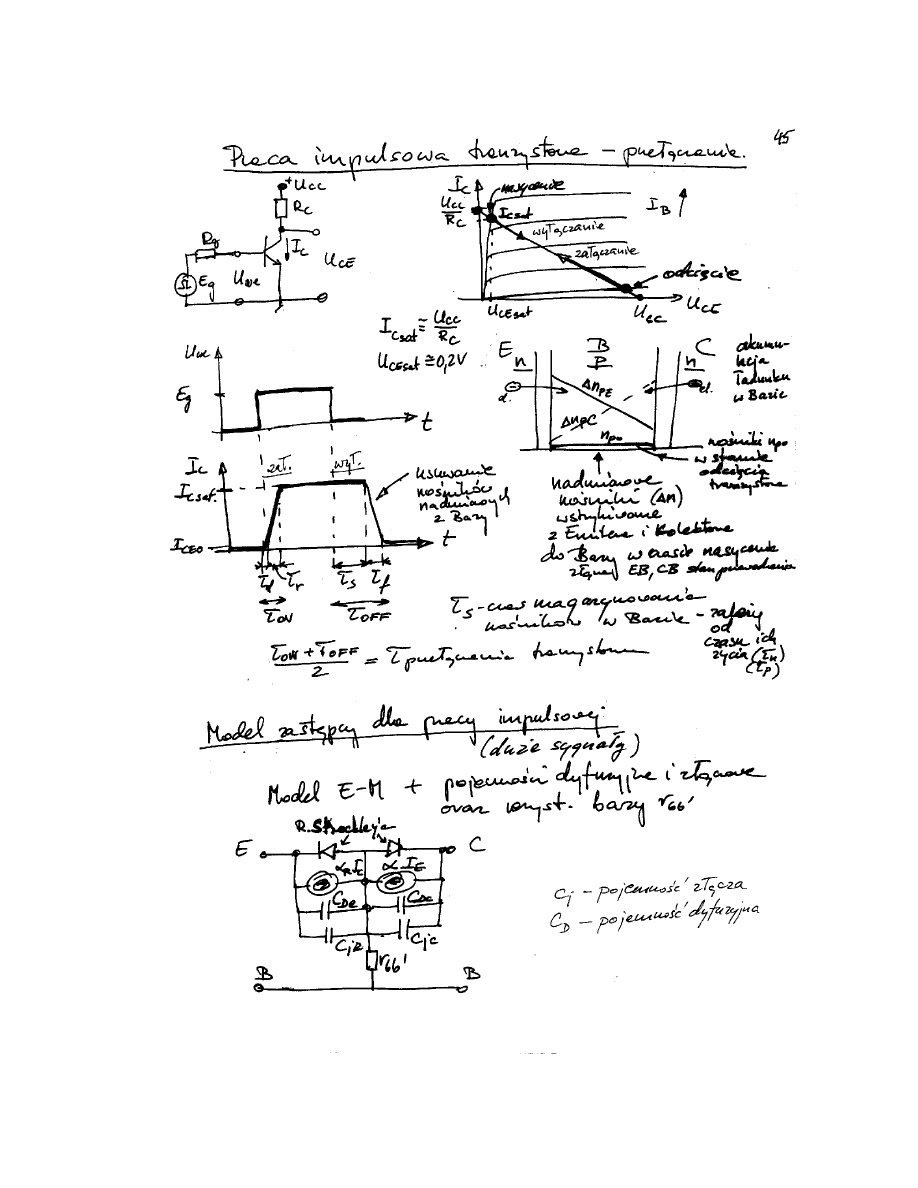 45
Praca impulsowa tranzystora – przełączanie.
+Ucc
Rc
Ic
UCE
Rg
Eg
Uwe
Ic
Ucc/Rc
nasycenie
ICsat
IB
wyłączanie
załączanie
odcięcie
UCEsat
Ucc
UCE
ICsat ≅ Ucc/Rc
UCEsat ≅ 0,2V
Uwe
Eg
t
E
n
B
P
C
n
akumu-
lacja
ładunku
w Bazie
ΔnPE
ΔnPC
npo
nośniki npo
w stanie
odcięcia
tranzystora
Ic
ICsat
ICEO
zał.
wył.
t
usuwanie
nośników
nadmiarowych
z Bazy
τd τr τs τf
τON τOFF
nadmiarowe
nośniki (Δn)
wstrzykiwane
z Emitera i Kolektora
do Bazy w czasie nasycenia
złączy EB, CB stan przewodzenia
τs – czas magazynowania
nośników w Bazie – zależy
od
czasu ich
życia (τn)
(τp)
(τON + τOFF)/2 = τ przełączania tranzystora
Model zastępczy dla pracy impulsowej
(duże sygnały)
Model E-M + pojemności dyfuzyjne i złączowe
oraz rezyst. bazy rbb'
E
C
αR Ic
α IE
CDe
CDc
Cje
Cjc
rbb'
B
B
Cj – pojemność złącza
CD – pojemność dyfuzyjna